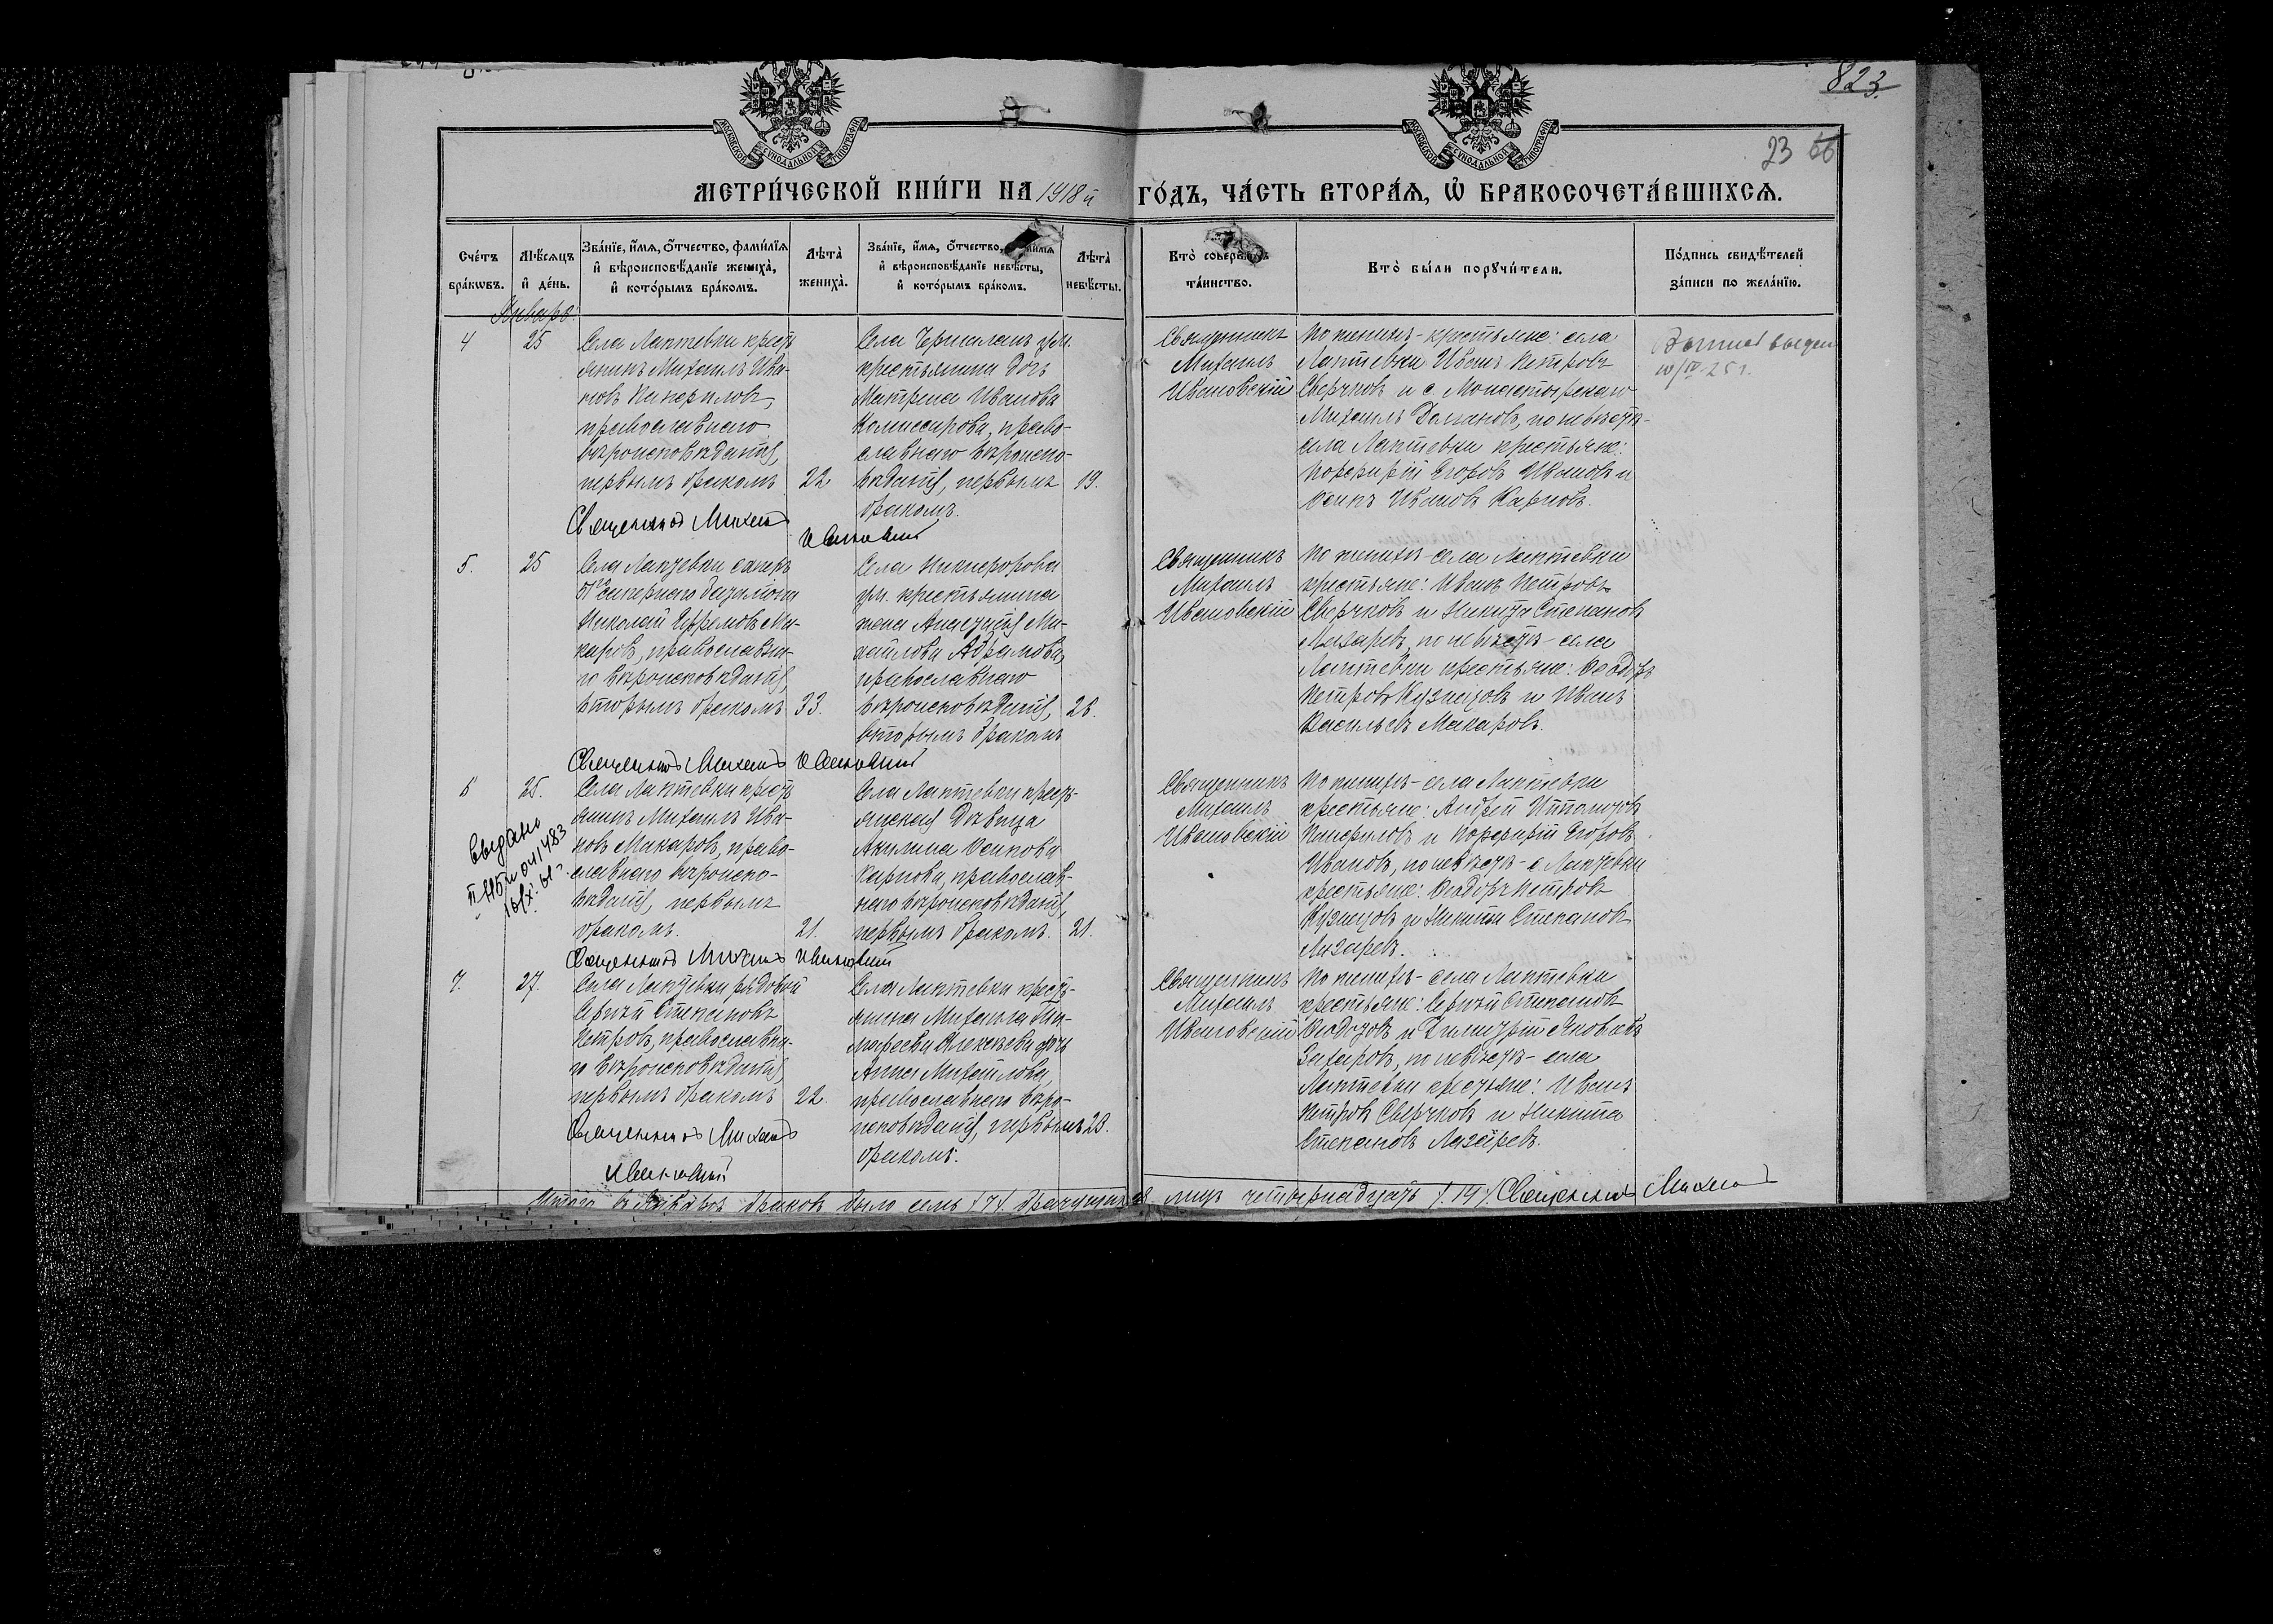 823.
23 66
МЕТРИ́ЧЕСКОЙ КНИ́ГИ НА 1918 й ГО́ДЪ, ЧА́СТЬ ВТОРА́Я, Ѡ БРАКОСОЧЕТА́ВШИХСЯ.
Сче́тъ бра́кѡвъ.
Мѣ́сяцъ и де́нь.
Зва́нїе, и́мя, о́тчество, фами́лїя и вѣроисповѣ́данїе жениха̀, и кото́рымъ бра́комъ.
Лѣта̀ жениха̀.
Зва́нїе, и́мя, о́тчество, фами́лїя и вѣроисповѣ́данїе невѣ́сты, и кото́рымъ бра́комъ.
Лѣта̀ невѣ́сты.
Кто̀ соверша́лъ та́инство.
Кто̀ бы́ли порꙋчи́тели.
По́дпись свидѣ́телей за́писи по жела́нїю.
Январь.
4
25
Села Лаптевки кресть
янинъ Михаилъ Ива-
новъ Панфиловъ,
православнаго
вѣроисповѣданія,
первымъ бракомъ
22
Села
крестьянина дочь
Матрена Иванова
Комиссарова, право-
славнаго вѣроиспо-
вѣданія, первымъ
бракомъ.
19.
Священникъ
Михаилъ
Ивановскій
По женихѣ - крестьяне: села
Лаптевки Иванъ Петровъ
Сверчковъ и с. Монастырскаго
Михаилъ, по невѣстѣ -
села Лаптевки крестьяне:
Порфирій Егоровъ Ивановъ и
Осипъ Ивановъ Карповъ.
выдан
10/IV 25 г.
Священникъ Михаилъ
Ивановскій
5.
25
Села Лаптевки саперъ
сапернаго баталіона
Николай Ефремовъ Ма-
каровъ, православна-
го вѣроисповѣданія,
вторымъ бракомъ
33.
Села Никифорова
ум. крестьянина
жена Анастасія Ми-
хайлова Абрамова,
православнаго
вѣроисповѣданія,
вторымъ бракомъ
28.
Священникъ
Михаилъ
Ивановскій
По женихѣ - села Лаптевки
крестьяне: Иванъ Петровъ
Сверчковъ и Никита Степановъ
Лазаревъ, по невѣстѣ - села
Лаптевки крестьяне: Ѳеодоръ
Петровъ Кузнецовъ и Иванъ
Васильевъ Макаровъ.
Священникъ Михаилъ Ивановскій
6
25.
выдано
Села Лаптевки кресть
янинъ Михаилъ Ива-
новъ Макаровъ, право-
славнаго вѣроиспо-
вѣданія, первымъ
бракомъ.
21.
Села Лаптевки кресть-
янская дѣвица
Акилина Осипова
Карпова, православ-
наго вѣроисповѣданія,
первымъ бракомъ.
21.
Священникъ
Михаилъ
Ивановскій
По женихѣ - села Лаптевки
крестьяне: Андрей
Панфиловъ и Порфирій Егоровъ
Ивановъ, по невѣстѣ - с. Лаптевки
крестьяне: Ѳеодоръ Петровъ
Кузнецовъ и Никита Степановъ
Лазаревъ.
Священникъ Михаилъ Ивановскій
7.
27.
Села Лаптевки рядовой
Сергій Степановъ
Петровъ, православна-
го вѣроисповѣданія,
первымъ бракомъ
22.
Села Лаптевки кресть-
янина Михаила Ти-
мофеева Алексѣева дочь
Анна Михайлова,
православнаго вѣро-
исповѣданія, первымъ
бракомъ.
23.
Священникъ
Михаилъ
Ивановскій
По женихѣ - села Лаптевки
крестьяне: Сергій Степановъ
Ѳедотовъ и Димитрій Яковлевъ
Захаровъ, по невѣстѣ - села
Лаптевки крестьяне: Иванъ
Петровъ Сверчковъ и Никита
Степановъ Лазаревъ.
Священникъ Михаилъ
Ивановскій
Итого въ Январѣ браковъ было семь /7/. Брачущихся лицъ четырнадцать /14/. Священникъ Михаилъ